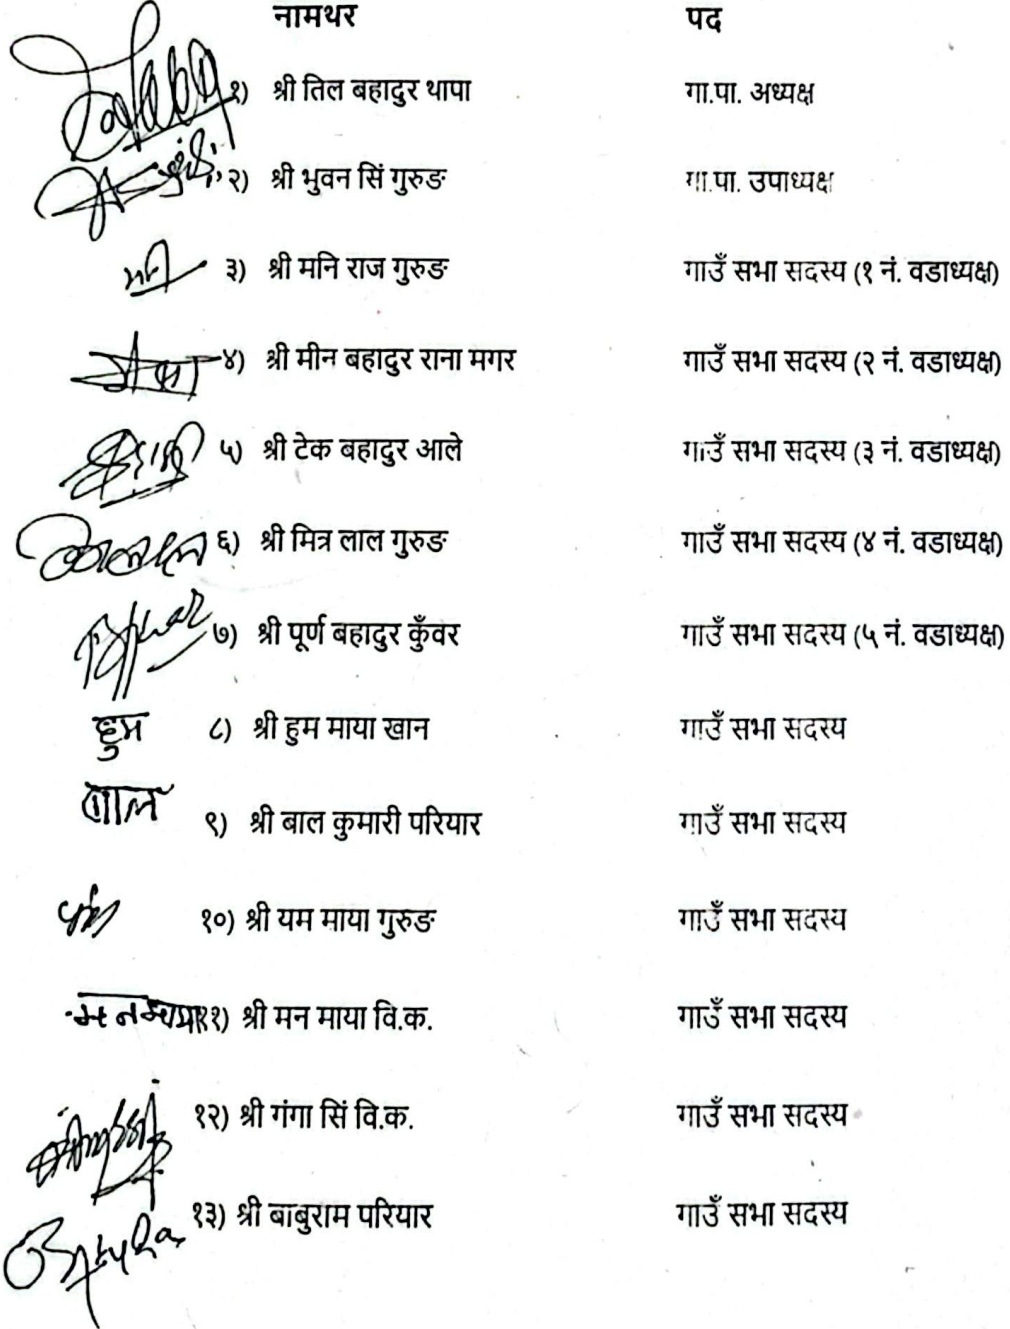 नामथर पद
१) श्री तिल बहादुर थापा गा.पा. अध्यक्ष
२) श्री भुवन सिं गुरुङ गा.पा. उपाध्यक्ष
३) श्री मनि राज गुरुङ गाउँ सभा सदस्य (१ नं. वडाध्यक्ष)
४) श्री मीन बहादुर राना मगर गाउँ सभा सदस्य (२ नं. वडाध्यक्ष)
५) श्री टेक बहादुर आले गाउँ सभा सदस्य (३ नं. वडाध्यक्ष)
६) श्री मित्र लाल गुरुङ गाउँ सभा सदस्य (४ नं. वडाध्यक्ष)
७) श्री पूर्ण बहादुर कुँवर गाउँ सभा सदस्य (५ नं. वडाध्यक्ष)
हुम ८) श्री हुम माया खान गाउँ सभा सदस्य
बाल ९) श्री बाल कुमारी परियार गाउँ सभा सदस्य
१०) श्री यम माया गुरुङ गाउँ सभा सदस्य
मनमाया ११) श्री मन माया वि.क. गाउँ सभा सदस्य
१२) श्री गंगा सिं वि.क. गाउँ सभा सदस्य
१३) श्री बाबुराम परियार गाउँ सभा सदस्य